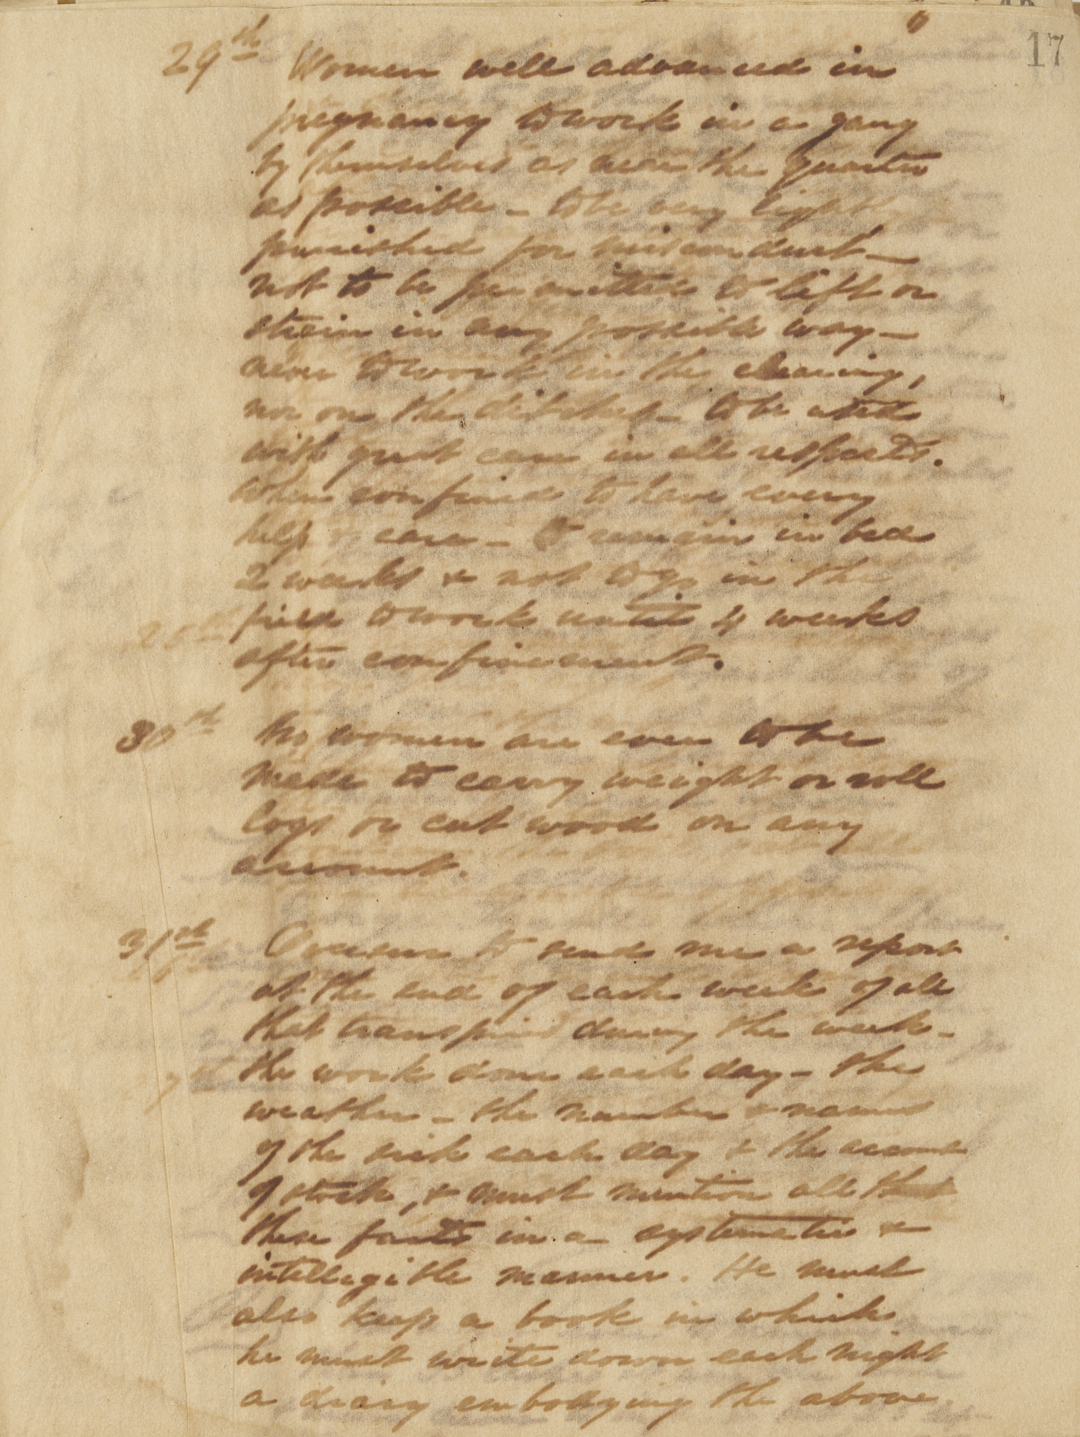 17
29th Women well advanced in
pregnancy to work in a gang
by themselves as near the quarter
as possible - to be very lightly
punished for misconduct -
not to be permitted to lift or
strain in any possible way -
never to work in the clearing,
nor on the ditches - to be used
with great care in all respects.
When confined to have every
help & care - to remain in bed
2 weeks & not to go in the
field to work until 4 weeks
after confinement.
30th No women are ever to be
made to carry weight or roll
logs or cut wood on any
account.
31st Overseer to send me a report
at the end of each week of all
that transpired during the week -
the work done each day - the
weather - the number & names
of the sick each day & the account
of stock, & must mention all
these facts in a systematic &
intelligible manner. He must
also keep a book in which
he must write down each night
a diary embodying the above